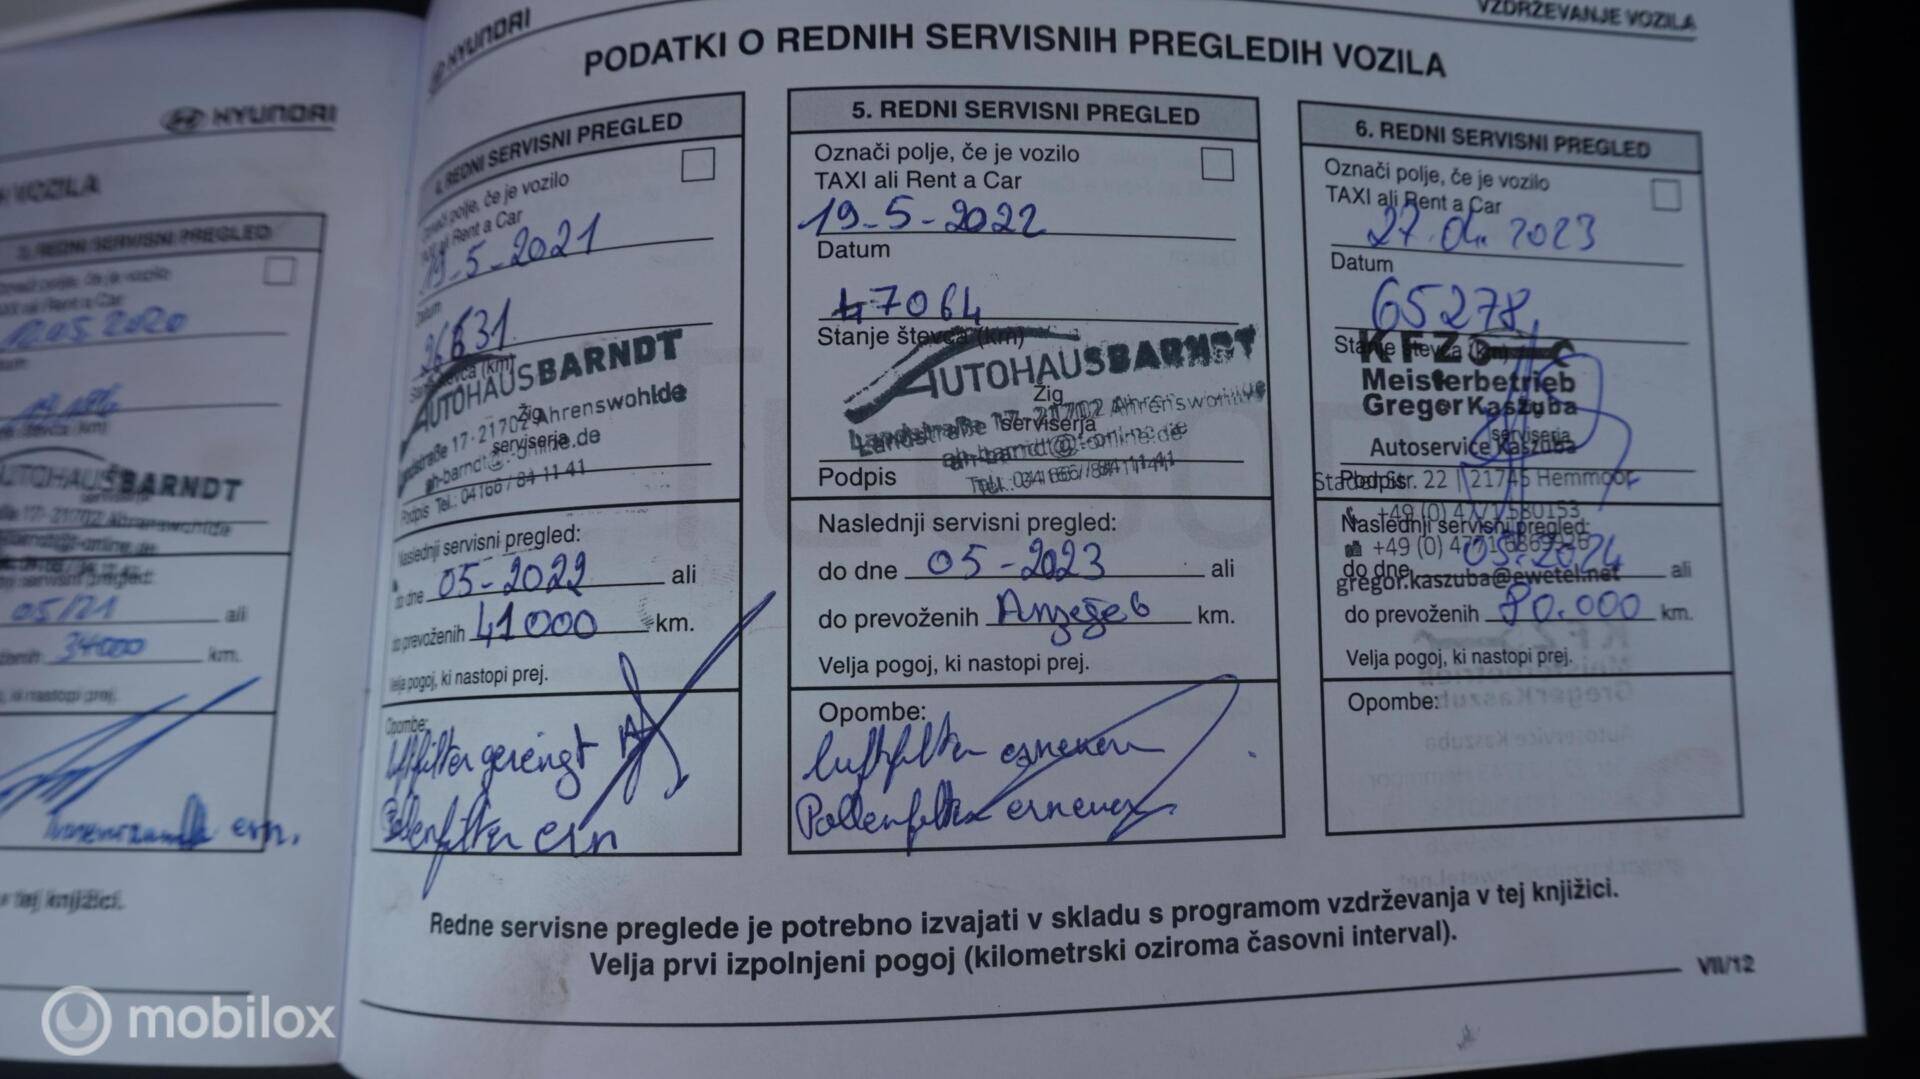 HYUNDAI
VOZILA
3. REDNI SERVISNI PREGLED
12.05.2020
AUTOHAUSBARNDT
21702 Ahrenswohlde
05/21 ali
34000 km.
ern.
v tej knjižici.
HYUNDAI
VZDRŽEVANJE VOZILA
PODATKI O REDNIH SERVISNIH PREGLEDIH VOZILA
4. REDNI SERVISNI PREGLED
Označi polje, če je vozilo
TAXI ali Rent a Car
19-5-2021
Datum
Stanje števca (km)
AUTOHAUSBARNDT
Žig
Landstraße 17 · 21702 Ahrenswohlde
serviserja
ah-barndt@t-online.de
Podpis Tel.: 04166 / 84 11 41
Naslednji servisni pregled:
do dne 05-2022 ali
do prevoženih 41000 km.
Velja pogoj, ki nastopi prej.
Opombe:
Luftfilter gereingt
Pollenfilter ern
5. REDNI SERVISNI PREGLED
Označi polje, če je vozilo
TAXI ali Rent a Car
19-5-2022
Datum
47064
Stanje števca (km)
AUTOHAUSBARNDT
Žig
Landstraße 17 · 21702 Ahrenswohlde
serviserja
ah-barndt@t-online.de
Podpis
Naslednji servisni pregled:
do dne 05-2023 ali
do prevoženih km.
Velja pogoj, ki nastopi prej.
Opombe:
Luftfilter erneuern
Pollenfilter erneuern
6. REDNI SERVISNI PREGLED
Označi polje, če je vozilo
TAXI ali Rent a Car
27.04.2023
Datum
65278
Stanje števca (km)
KFZ
Meisterbetrieb
Gregor Kaszuba
serviserja
Autoservice Kaszuba
Podpis
Stader Str. 22 | 21745 Hemmoor
+49 (0) 4771 580153
Naslednji servisni pregled:
+49 (0) 4771
do dne 05.2024 ali
gregor.kaszuba@ewetel.net
do prevoženih 80.000 km.
Velja pogoj, ki nastopi prej.
Opombe:
Redne servisne preglede je potrebno izvajati v skladu s programom vzdrževanja v tej knjižici.
Velja prvi izpolnjeni pogoj (kilometrski oziroma časovni interval).
VII/12
mobilox